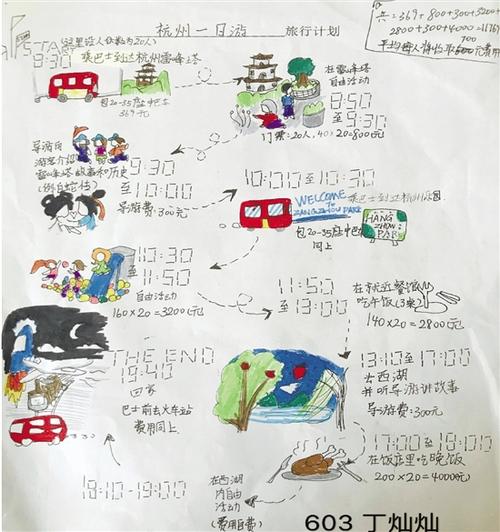 杭州一日游 旅行计划
共=369+800+300+3200+
2800+300+4000=11769
START (这里设人位数为20人)
8:30 乘巴士到达杭州雷峰塔
包20-35座中巴车
369元
在雷峰塔
自由活动
8:50
至
9:30
门票:20人,40×20=800元
导游向
游客介绍
雷峰塔故事和历史
(例白蛇传)
9:30
至
10:00
导游费:300元
10:00至10:30
乘巴士到达杭州乐园
WELCOME
TO
HANGZHOU PARK
HANG
ZHOU
PAR
包20-35座中巴车
同上
10:30
至
11:50
自由活动
160×20=3200元
11:50
至
13:00
在就近餐馆
吃午饭
140×20=2800元
13:10至17:00
去西湖
并听导游讲故事
导游费:300元
17:00至18:00
在饭店里吃晚饭
200×20=4000元
在西湖
内自由
活动
(费用自费)
18:10-19:00
THE END
19:40
回家
巴士前去火车站
费用同上
603 丁灿灿